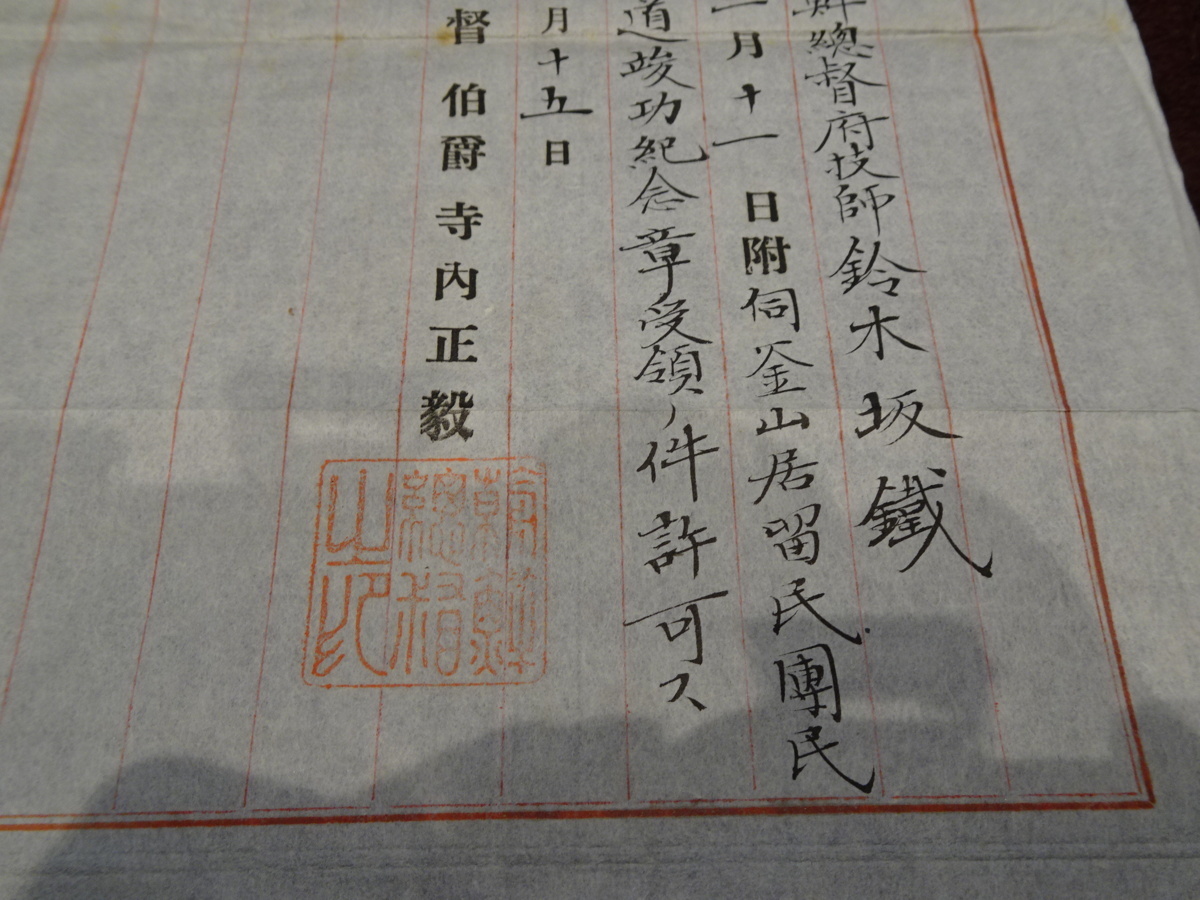 鮮總督府技師鈴木坂鐵
一月十一日附伺釜山居留民團民
道竣功紀念章受領ノ件許可ス
月十五日
督伯爵寺內正毅
朝鮮
總督
之印